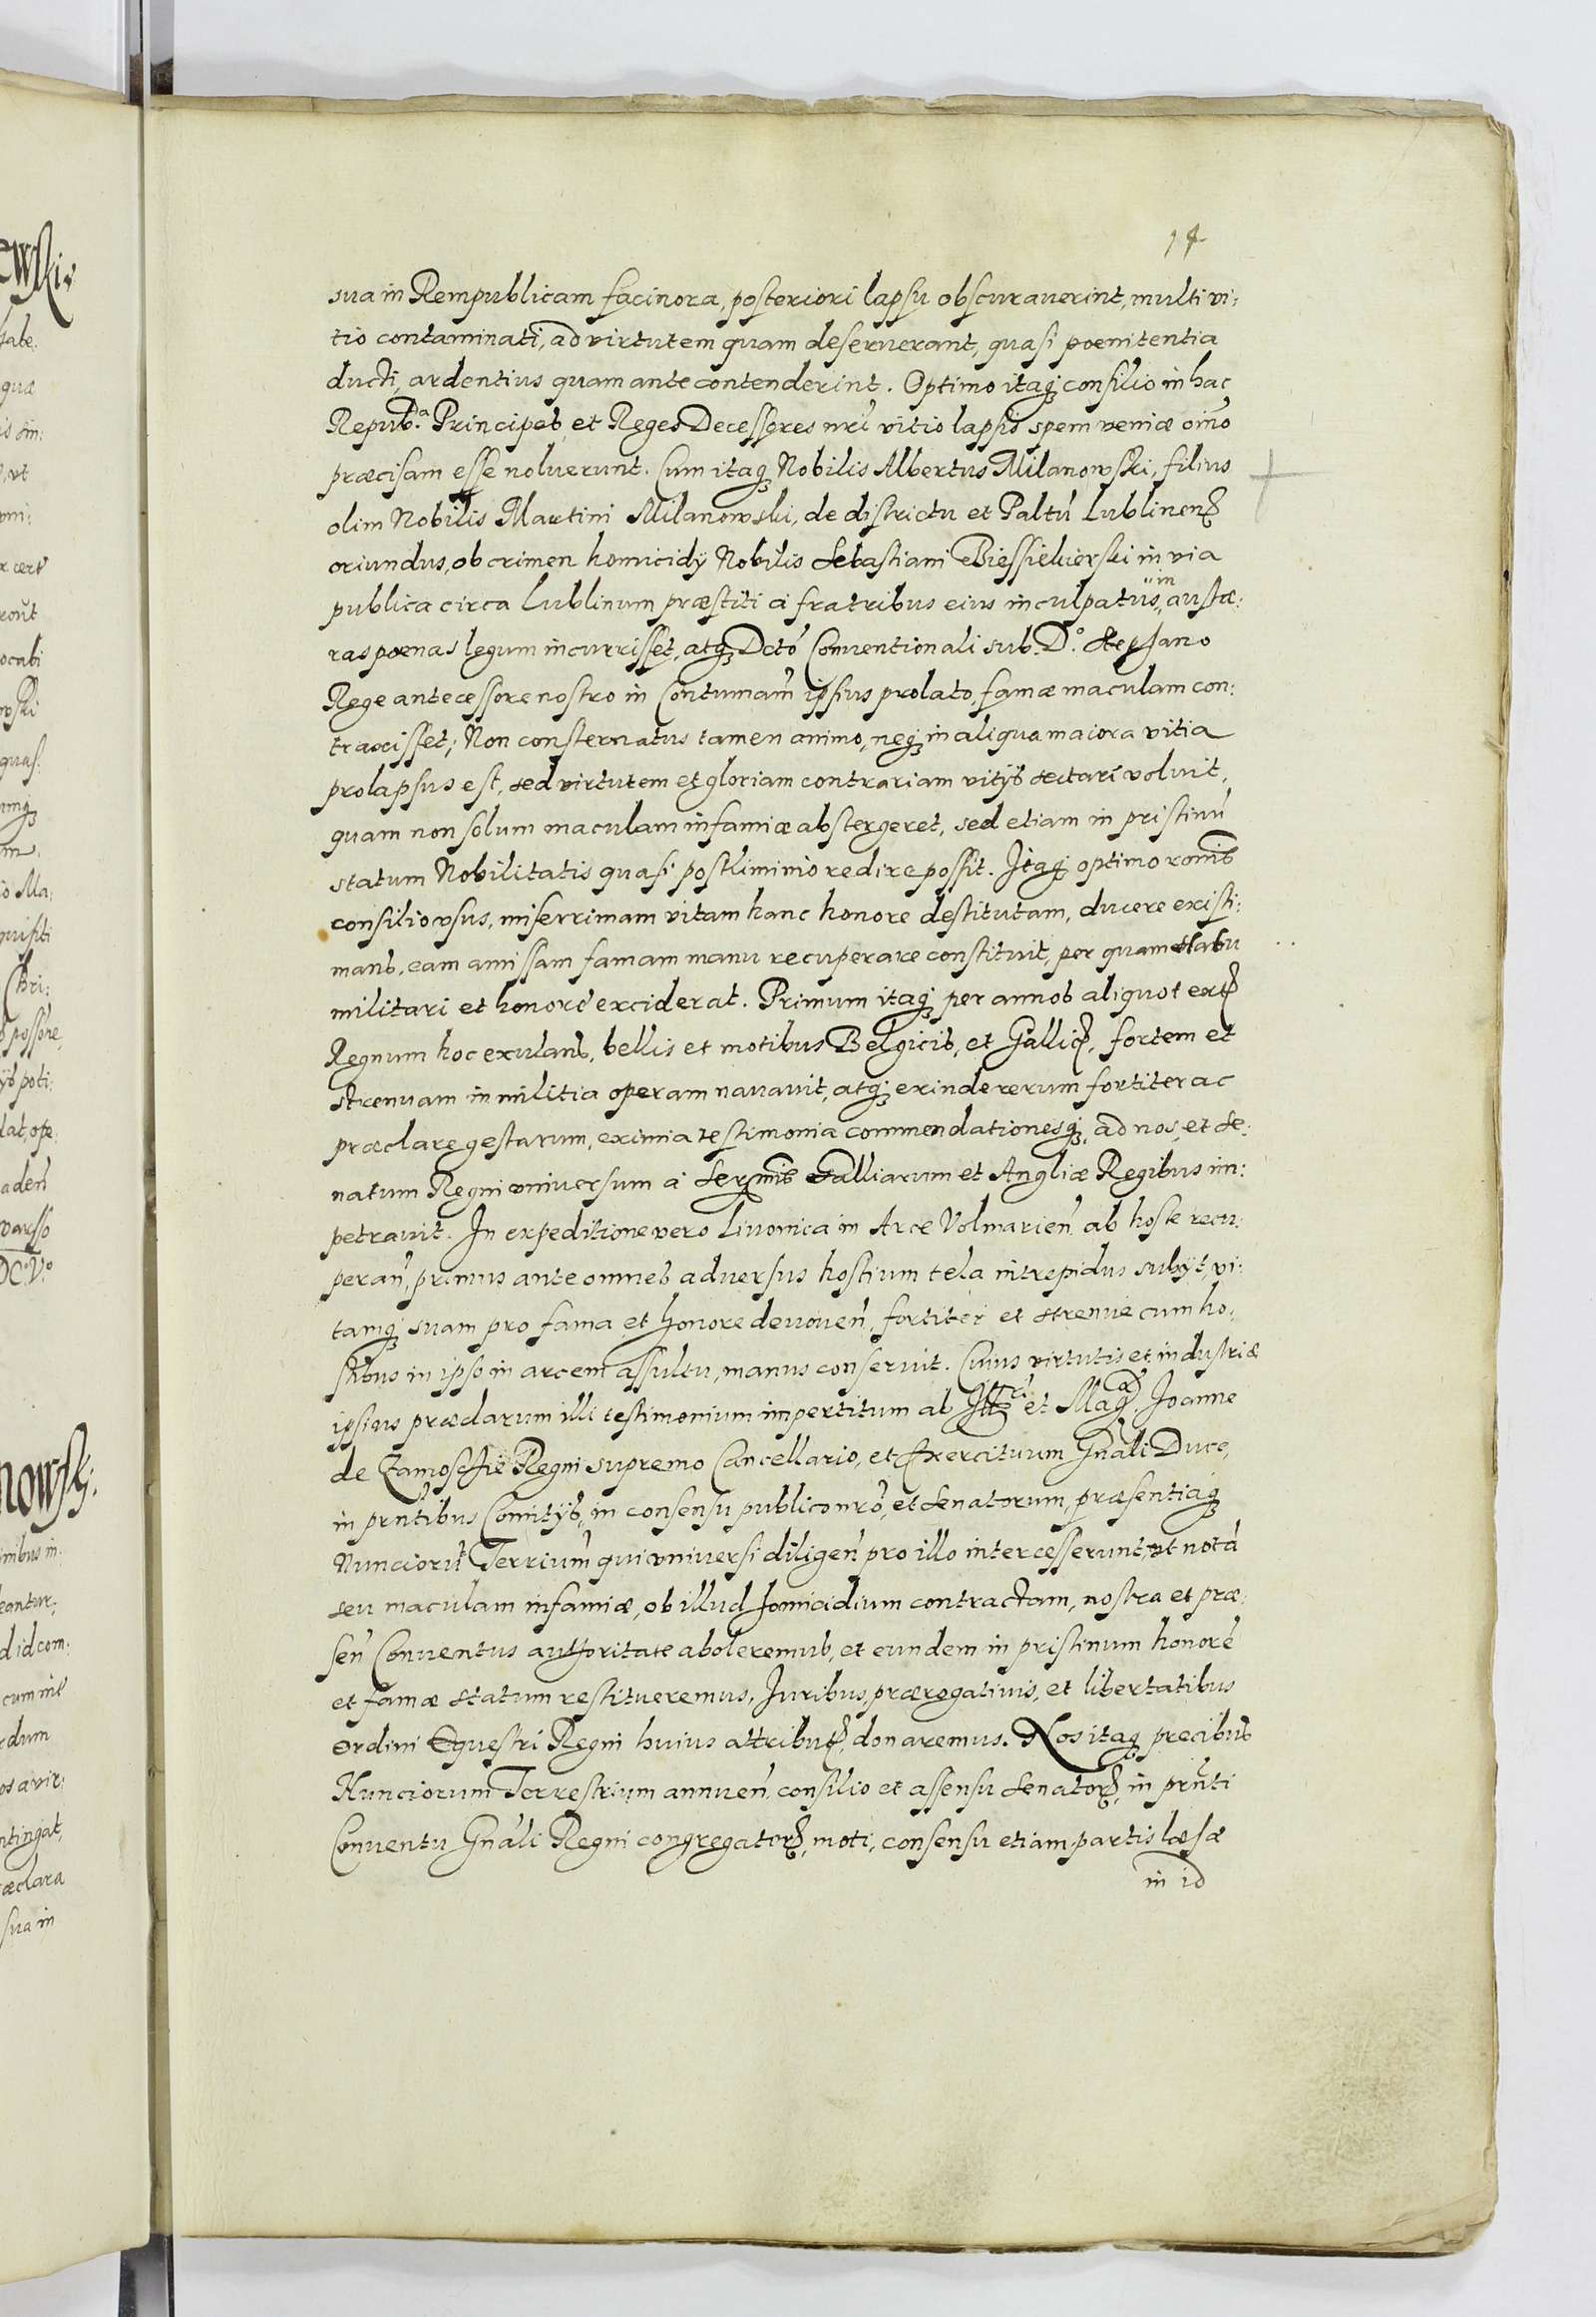 14
sua in Rempublicam facinora, posteriori lapsu obscurauerint, multi vi:
tio contaminati, ad virtutem quam deseruerant, quasi poenitentia
ducti, ardentius quam ante contenderint. Optimo itaq₃ consilio in hac
Repub.ᵃ Principes, et Reges Decessores nrĩ vitio lapsis spem veniæ oĩno
præcisam esse noluerunt. Cum itaq₃ Nobilis Albertus Milanowski, filius
olim Nobilis Martini Milanowski, de districtu et Paltũ Lublinen̄
oriundus, ob crimen homicidÿ Nobilis Sebastiani in via
publica circa Lublinum præstiti à fratribus eius inculpatus, in austæ:
ras poenas legum incurrisset, atq₃ Dctõ Conuentionali sub D.º Stephano
Rege antecessore nostro in Contumam̃ ipsius prolato, famæ maculam con:
traxisset; Non consternatus tamen animo, neq₃ in aliqua maiora vitia
prolapsus est, sed virtutem et gloriam contrariam vitÿs sectari voluit,
quam non solum maculam infamiæ abstergeret, sed etiam in pristinũ
statum Nobilitatis quasi postliminio redire possit. Itaq₃ optimo ronis̃
consilio vsus, miserrimam vitam hanc honore destitutam, ducere existi:
mans, eam amissam famam manu recuperare constituit, per quam statu
militari et honore exciderat. Primum itaq₃ per annos aliquot ext̃
Regnum hoc exulans, bellis et motibus Belgicis, et Gallic̃, fortem et
strenuam in militia operam nauauit, atq₃ exinde rerum fortiter ac
præclare gestarum, eximia testimonia commendationesq₃, ad nos, et Se:
natum Regni vniuersum à Serm̃is Galliarum et Angliæ Regibus im:
petrauit. In expeditione vero Liuonica in Arce Volmarien̄ ab hoste recu:
peran̄, primus ante omnes aduersus hostium tela intrepidus subÿt, vi:
tamq₃ suam pro fama et honore deuouen̄, fortiter et strenue cum ho:
stibus in ipso in arcem assultu, manus conseruit. Cuius virtutis et industriæ
ipsius præclarum illi testimonium impertitum ab Illr̃i et Mag̃. Joanne
de Zamoscie Regni supremo Cancellario, et Exercituum Gnãli Duce,
in prñtibus Comitÿs, in consensu publico nrõ, et Senatorum, præsentiaq₃
Nunciorũ Terrium̃ qui vniuersi diligen̄ pro illo intercesserunt, vt notã
seu maculam infamiæ, ob illud homicidium contractam, nostra et præ:
sen̄ Conuentus authoritate aboleremus, et eundem in pristinum honorẽ
et famæ statum restitueremus, Juribus, prærogatiuis, et libertatibus
Ordini Equestri Regni huius attribut̃, donaremus. Nos itaq₃ precibus
Nunciorum Terrestrium annuen̄, consilio et assensu Senator̃, in prñti
Conuentu Gnãli Regni congregator̃, moti, consensu etiam partis læsæ
in id